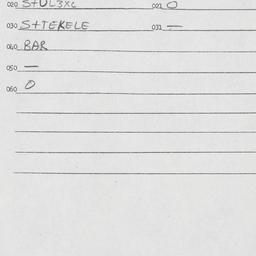 020 S+UL3XC 021 O
030 S+TEKELE 031 —
040 BAR
050 —
060 O